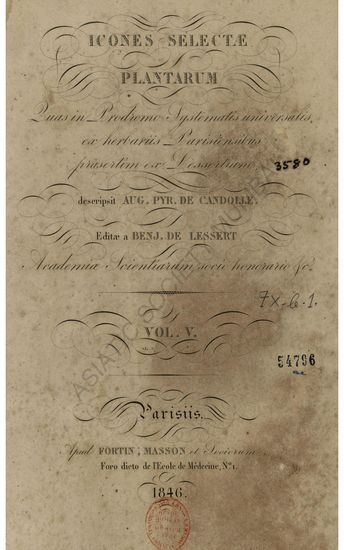 ICONES SELECTÆ
PLANTARUM
Quas in Prodromo Systematis universalis,
ex herbariis Parisiensibus
præsertim ex Lessertiano,
3580
descripsit AUG. PYR. DE CANDOLLE.
Editæ a BENJ. DE LESSERT
Academiæ Scientiarum socio honorario &c.
7x-6-1.
VOL. V.
54796
Parisiis.
Apud FORTIN, MASSON et Sociorum
Foro dicto de l'Ecole de Médecine, N.º 1.
1846.
ASIATIC SOCIETY MUMBAI